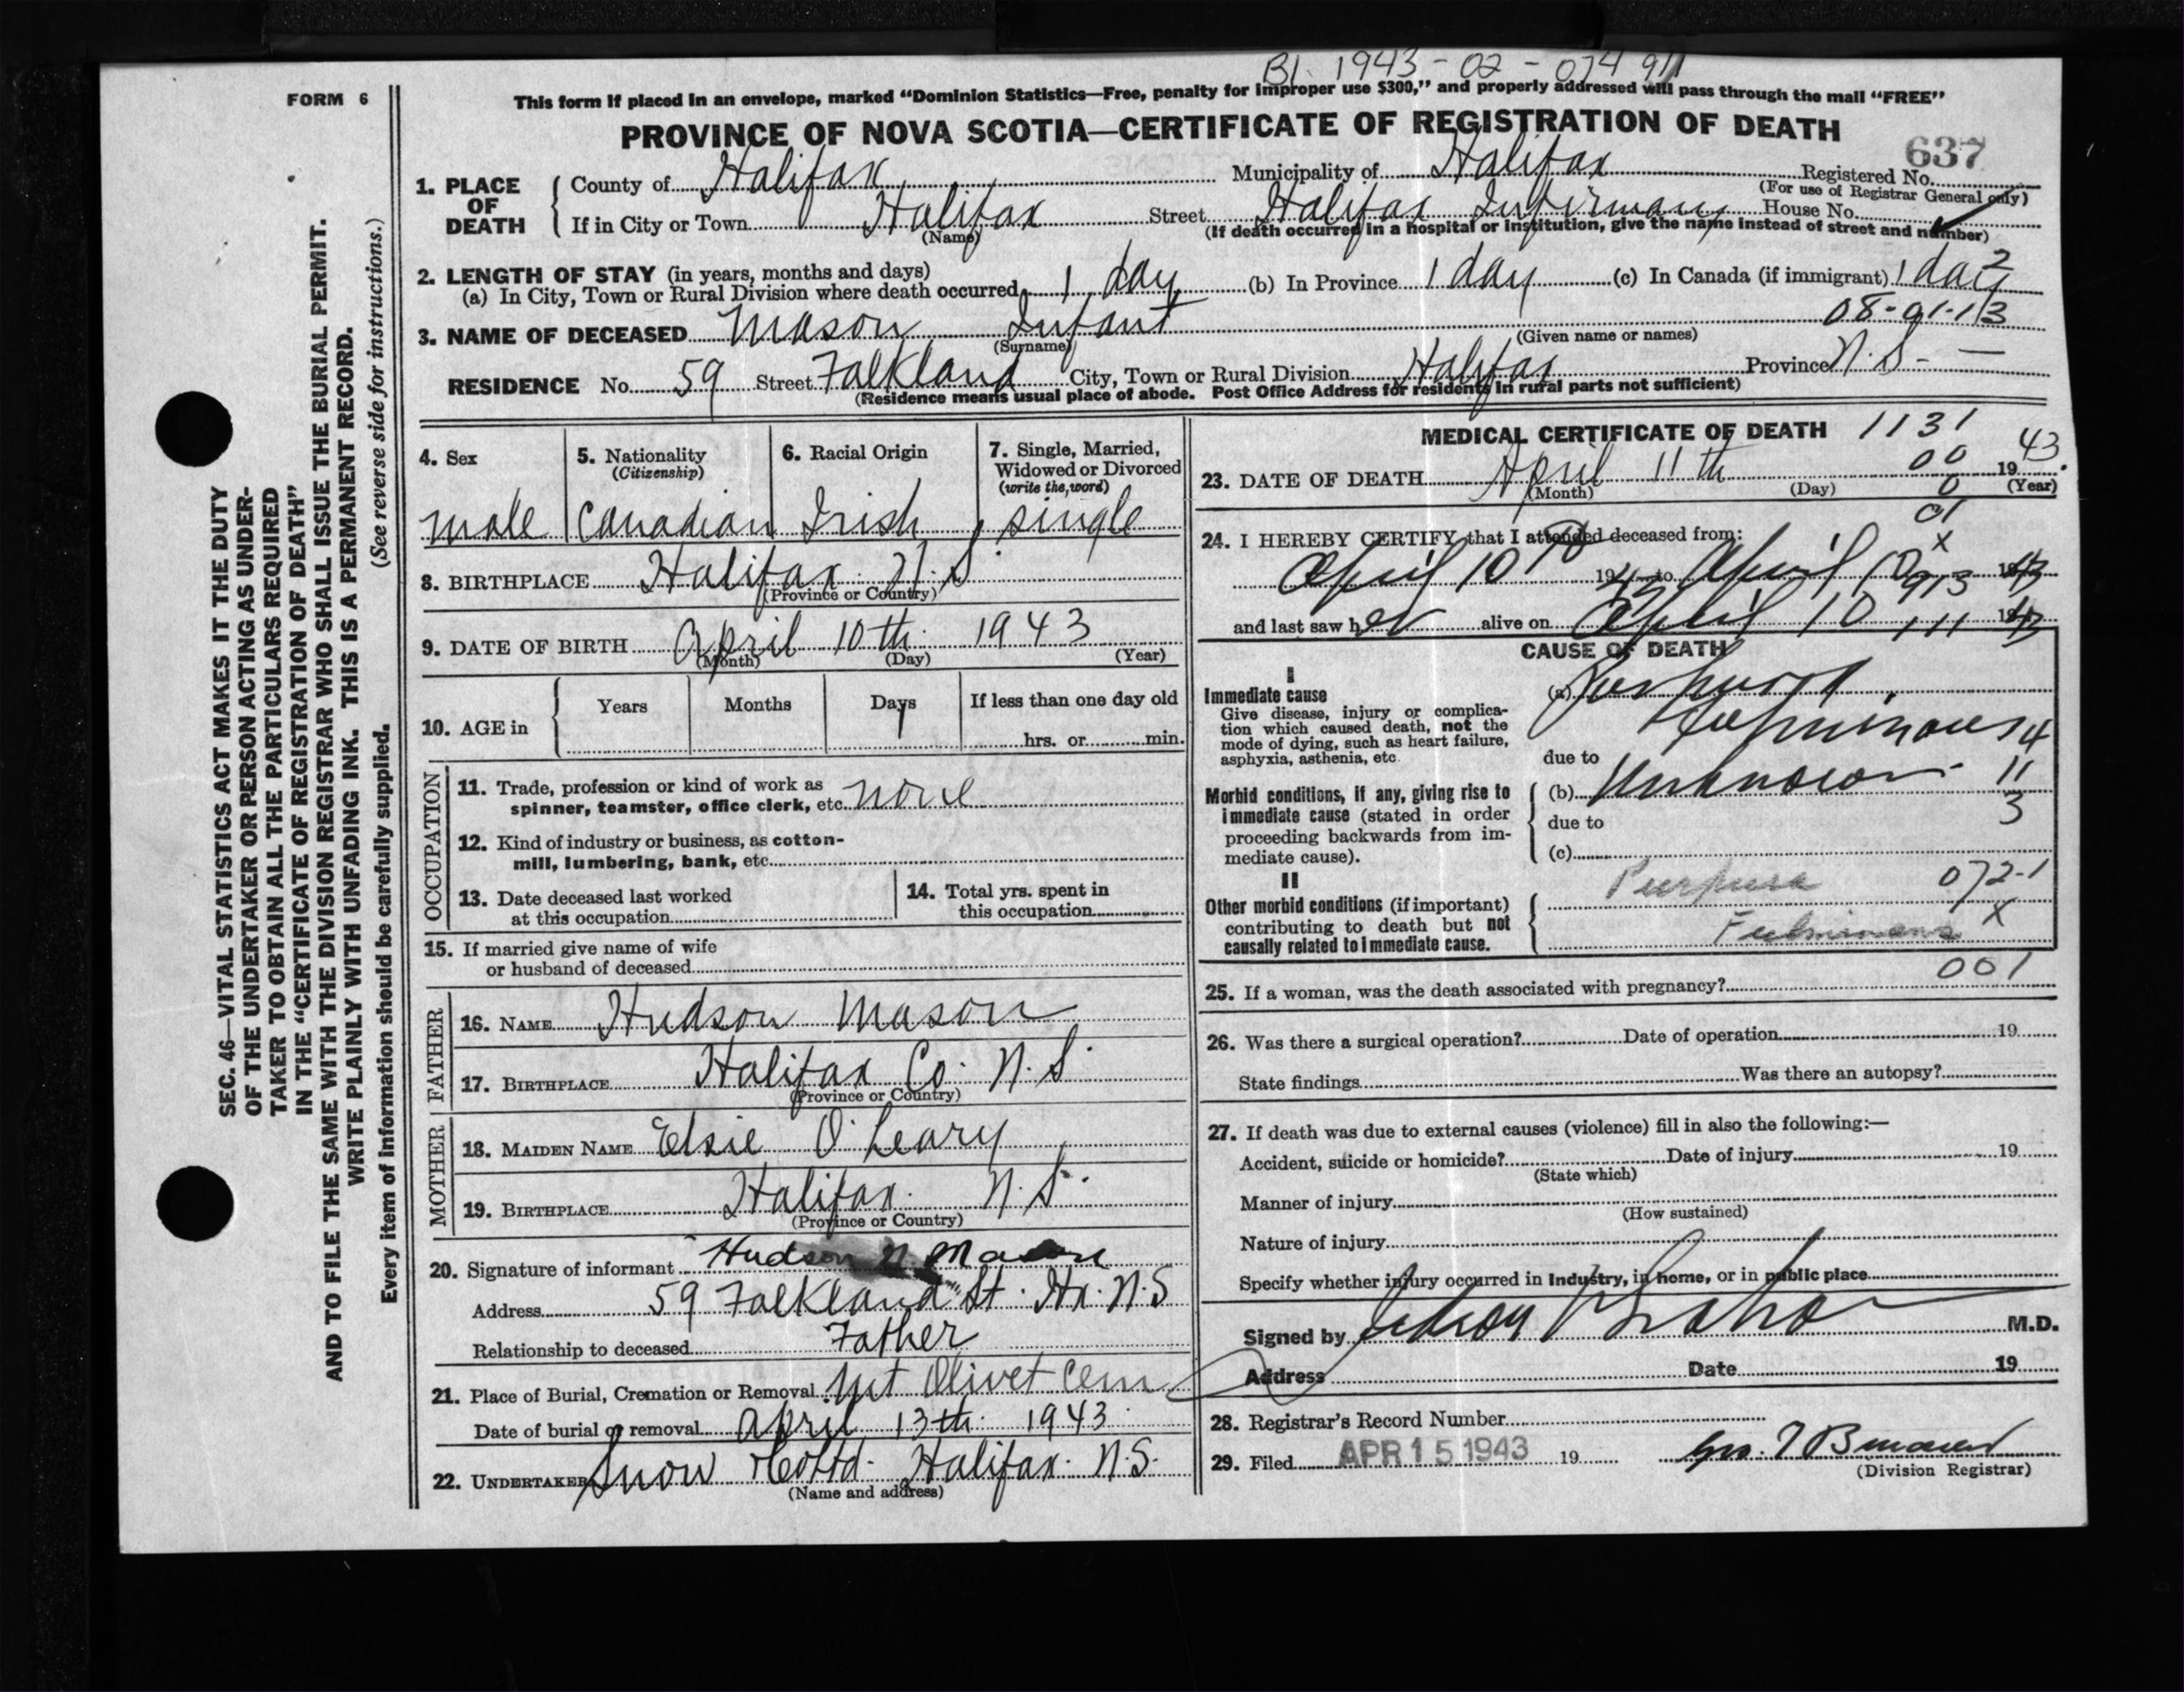 B1. 1943-02-074911
FORM 6
This form if placed in an envelope, marked “Dominion Statistics—Free, penalty for improper use $300,” and properly addressed will pass through the mail “FREE”
PROVINCE OF NOVA SCOTIA—CERTIFICATE OF REGISTRATION OF DEATH
637
1. PLACE OF DEATH { County of Halifax Municipality of Halifax Registered No.
(For use of Registrar General only)
If in City or Town Halifax Street Halifax Infirmary House No.
(Name) (If death occurred in a hospital or institution, give the name instead of street and number)
2. LENGTH OF STAY (in years, months and days)
(a) In City, Town or Rural Division where death occurred 1 day (b) In Province 1 day (c) In Canada (if immigrant) 1 day
2
08-91-113
3. NAME OF DECEASED Mason Infant
(Surname) (Given name or names)
RESIDENCE No. 59 Street Falkland City, Town or Rural Division Halifax Province N.S.
(Residence means usual place of abode. Post Office Address for residents in rural parts not sufficient)
4. Sex
male
5. Nationality
(Citizenship)
Canadian
6. Racial Origin
Irish
7. Single, Married,
Widowed or Divorced
(write the word)
single
8. BIRTHPLACE Halifax N.S
(Province or Country)
9. DATE OF BIRTH April 10th 1943
(Month) (Day) (Year)
10. AGE in { Years Months Days If less than one day old
1 hrs. or min.
OCCUPATION
11. Trade, profession or kind of work as
spinner, teamster, office clerk, etc. none
12. Kind of industry or business, as cotton-
mill, lumbering, bank, etc.
13. Date deceased last worked
at this occupation
14. Total yrs. spent in
this occupation
15. If married give name of wife
or husband of deceased
FATHER
16. NAME Hudson Mason
17. BIRTHPLACE Halifax Co. N.S.
(Province or Country)
MOTHER
18. MAIDEN NAME Elsie O'Leary
19. BIRTHPLACE Halifax N.S.
(Province or Country)
20. Signature of informant Hudson Mason
Address 59 Falkland St. Hx. N.S
Relationship to deceased Father
21. Place of Burial, Cremation or Removal Mt Olivet Cem
Date of burial or removal April 13th 1943
22. UNDERTAKER Snow & Co Ltd. Halifax. N.S.
(Name and address)
MEDICAL CERTIFICATE OF DEATH
1131
00
0
01
x
23. DATE OF DEATH April 11th 1943
(Month) (Day) (Year)
24. I HEREBY CERTIFY that I attended deceased from:
April 10 1943 to April 10 1943
913
and last saw her alive on April 10 1943
111
CAUSE OF DEATH
I
Immediate cause
Give disease, injury or complica-
tion which caused death, not the
mode of dying, such as heart failure,
asphyxia, asthenia, etc.
(a) Purpura
Fulminans
14
due to
Morbid conditions, if any, giving rise to
immediate cause (stated in order
proceeding backwards from im-
mediate cause).
(b) Unknown
11
3
due to
(c)
II
Other morbid conditions (if important)
contributing to death but not
causally related to immediate cause.
Purpura 072-1
Fulminans X
001
25. If a woman, was the death associated with pregnancy?
26. Was there a surgical operation? Date of operation 19
State findings Was there an autopsy?
27. If death was due to external causes (violence) fill in also the following:—
Accident, suicide or homicide? Date of injury 19
(State which)
Manner of injury
(How sustained)
Nature of injury
Specify whether injury occurred in Industry, in home, or in public place
Signed by M.D.
Address Date 19
28. Registrar's Record Number
29. Filed APR 15 1943 19
(Division Registrar)
SEC. 46—VITAL STATISTICS ACT MAKES IT THE DUTY
OF THE UNDERTAKER OR PERSON ACTING AS UNDER-
TAKER TO OBTAIN ALL THE PARTICULARS REQUIRED
IN THE “CERTIFICATE OF REGISTRATION OF DEATH”
AND TO FILE THE SAME WITH THE DIVISION REGISTRAR WHO SHALL ISSUE THE BURIAL PERMIT.
WRITE PLAINLY WITH UNFADING INK. THIS IS A PERMANENT RECORD.
(See reverse side for instructions.)
Every item of information should be carefully supplied.